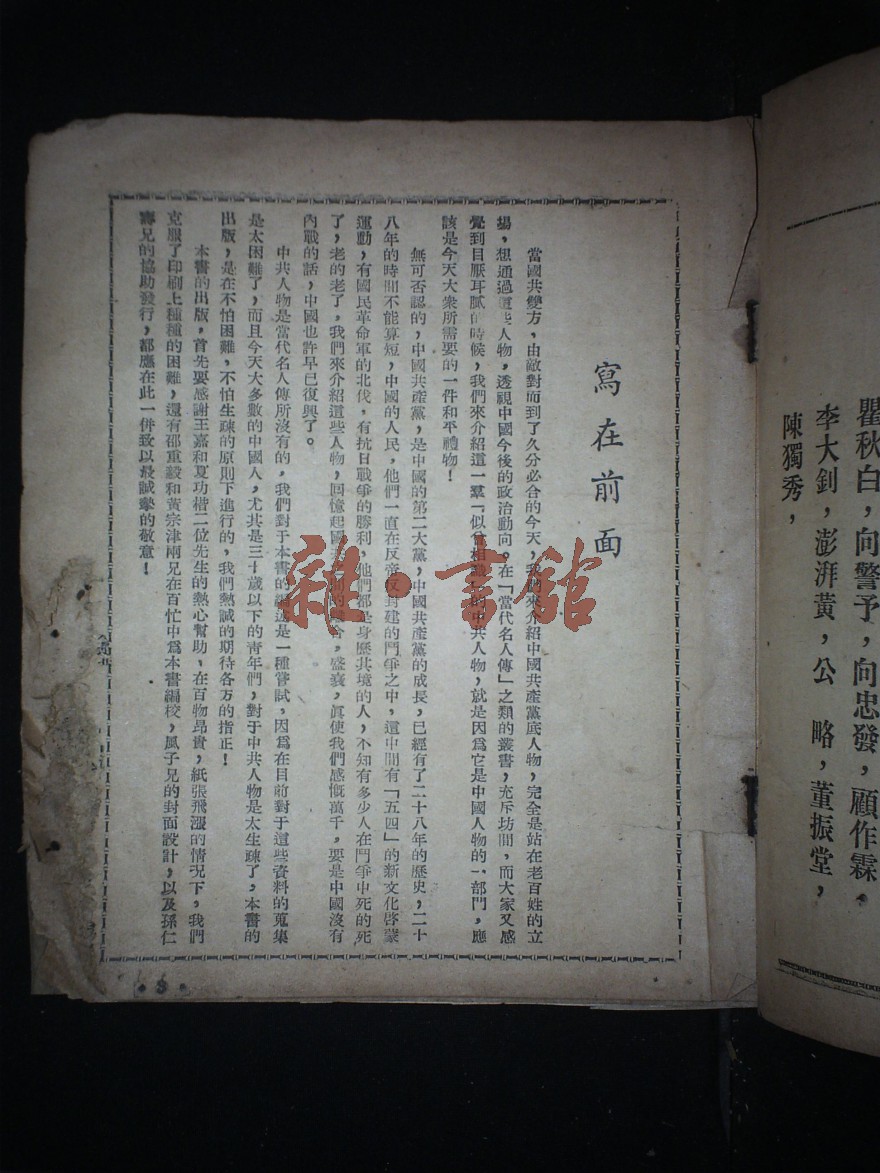 瞿秋白，向警予，向忠發，顧作霖，
李大釗，澎湃黃，公　略，董振堂，
陳獨秀，
寫在前面
當國共雙方，由敵對而到了久分必合的今天，我們來介紹中國共產黨底人物，完全是站在老百姓的立
場，想通過這些人物，透視中國今後的政治動向。在「當代名人傳」之類的叢書，充斥坊間，而大家又感
覺到目厭耳膩的時候，我們來介紹這一羣「似曾相識」的中共人物，就是因為它是中國人物的一部門，應
該是今天大衆所需要的一件和平禮物！
無可否認的，中國共產黨，是中國的第二大黨，中國共產黨的成長，已經有了二十八年的歷史，二十
八年的時間不能算短，中國的人民，他們一直在反帝反封建的鬥爭之中，這中間有「五四」的新文化啓蒙
運動，有國民革命軍的北伐，有抗日戰爭的勝利，他們都是身歷其境的人，不知有多少人在鬥爭中死的死
了，老的老了，我們來介紹這些人物，回憶起國共　　的　合，盛衰，眞使我們感慨萬千，要是中國沒有
內戰的話，中國也許早已復興了。
中共人物是當代名人傳所沒有的，我們對于本書的編述是一種嘗試，因爲在目前對于這些資料的蒐集
是太困難了，而且今天大多數的中國人，尤其是三十歲以下的靑年們，對于中共人物是太生疎了，本書的
出版，是在不怕困難，不怕生疎的原則下進行的，我們熱誠的期待各方的指正！
本書的出版，首先要感謝王嘉和夏功楷二位先生的熱心幫助，在百物昂貴，紙張飛漲的情况下，我們
克服了印刷上種種的困難，還有邵重毅和黃宗津兩兄在百忙中爲本書編校，風子兄的封面設計，以及孫仁
壽兄的協助發行，都應在此一併致以最誠摯的敬意！
・3・
雜・書館